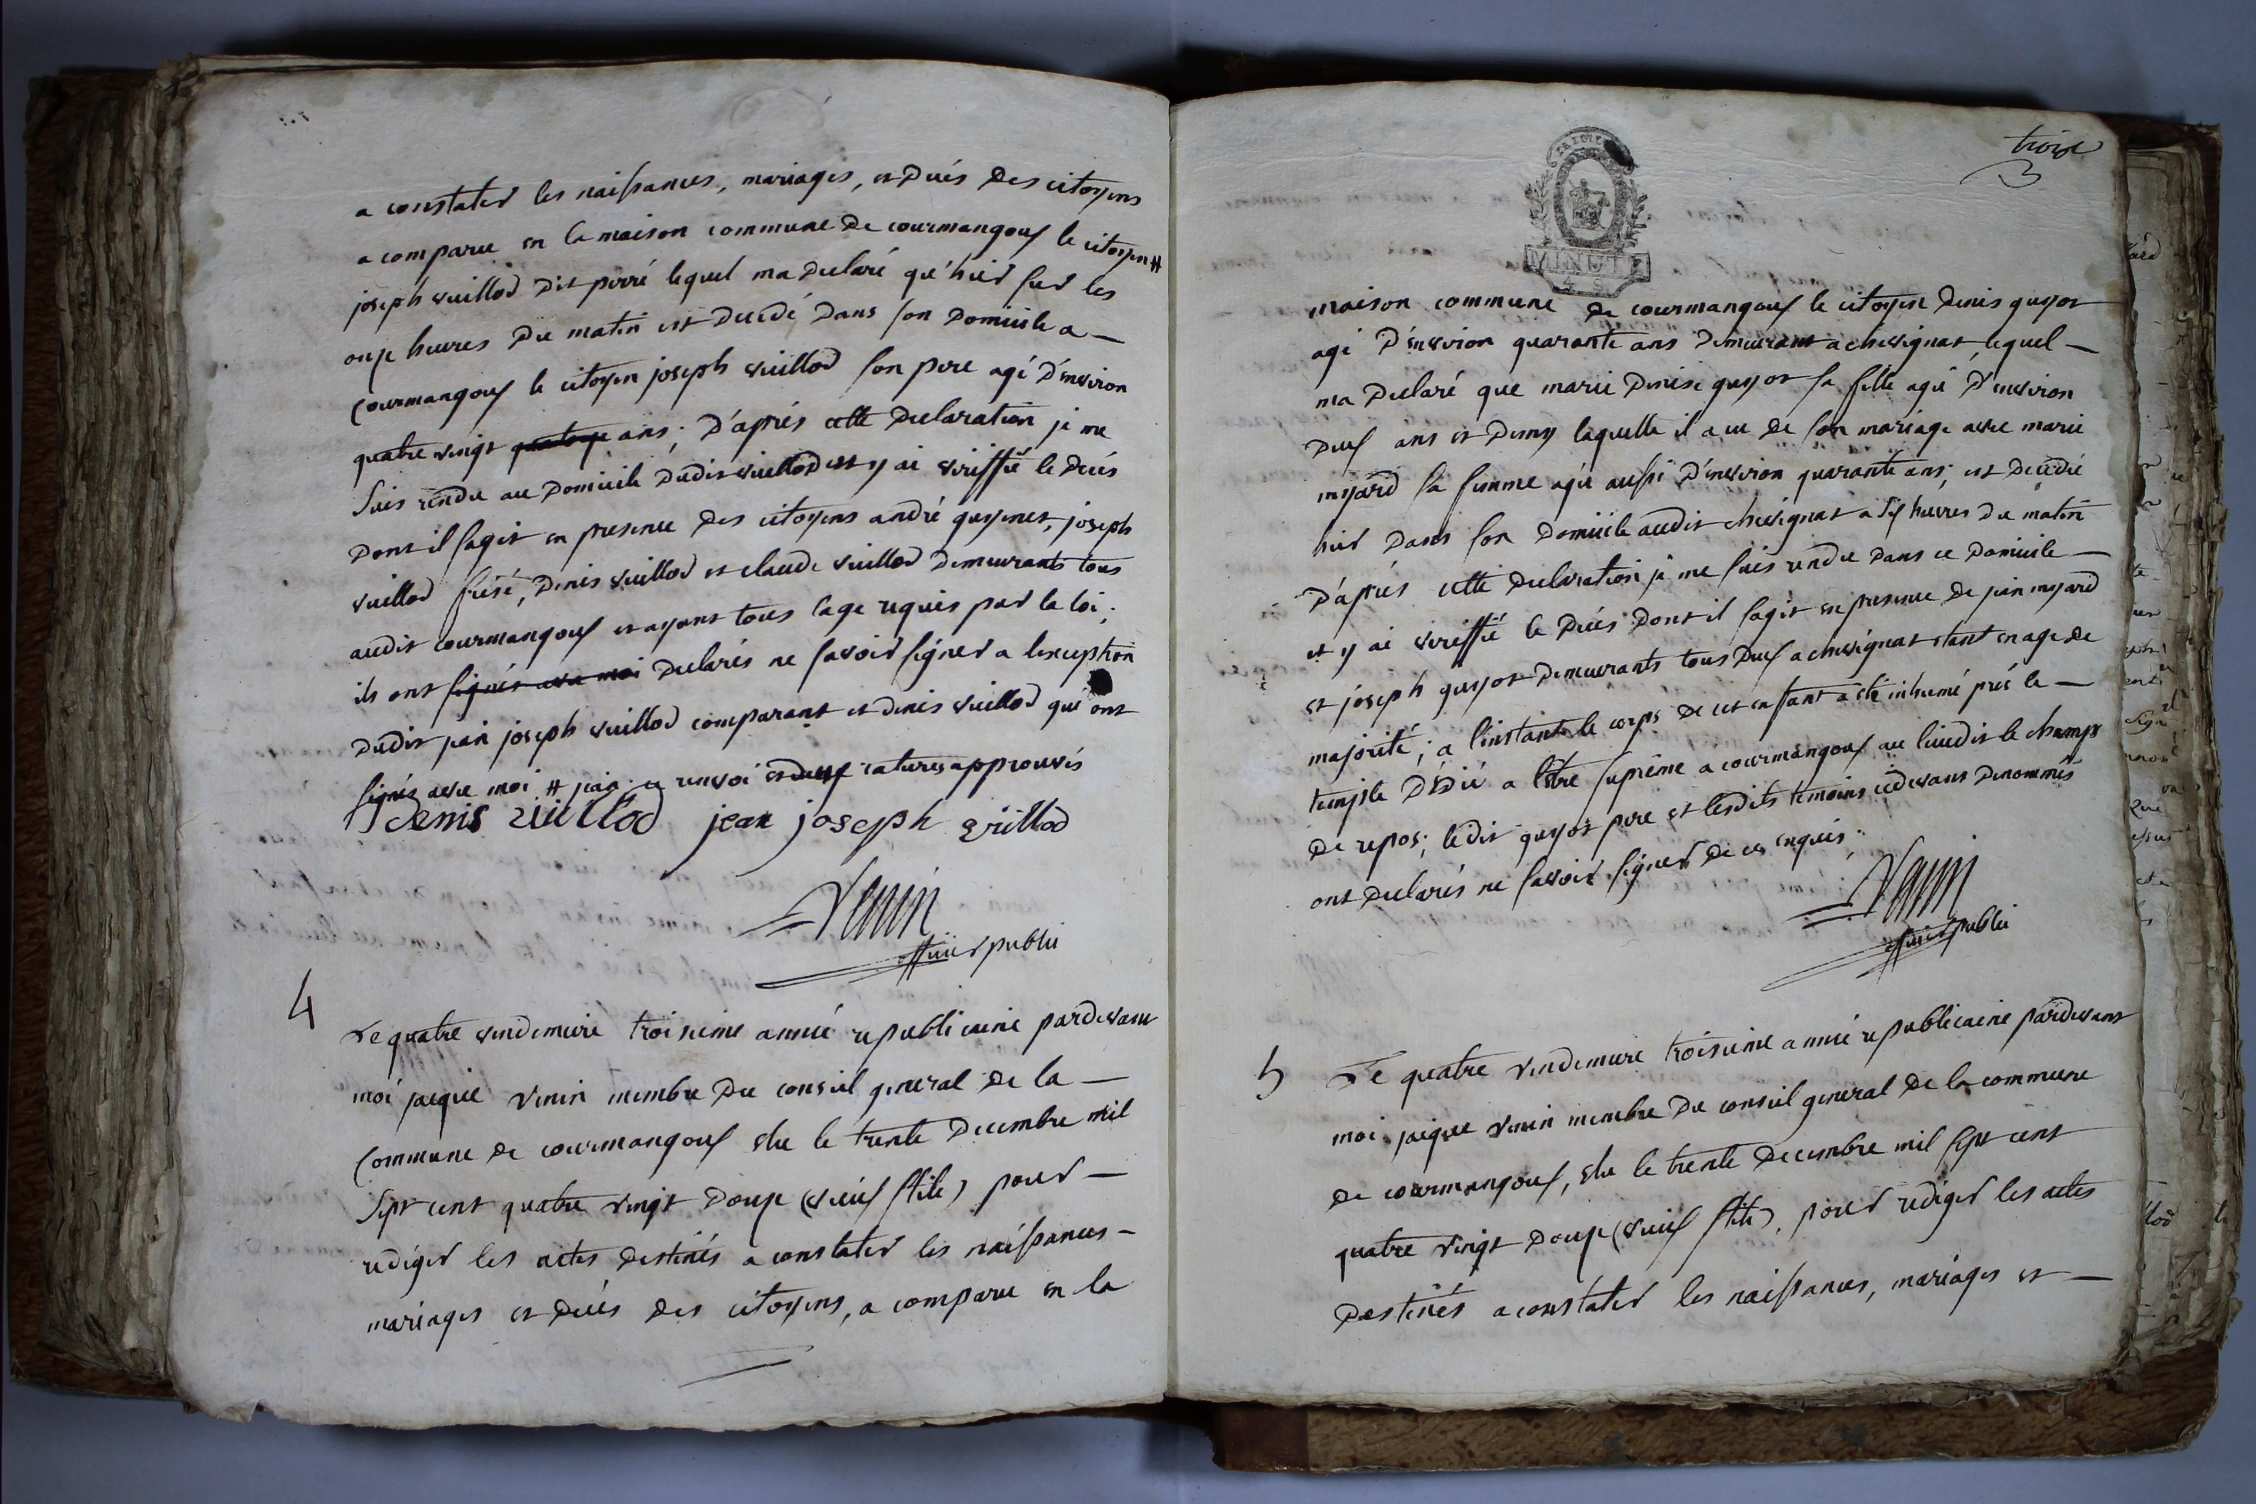 a constater les naissances, mariages, et Décès Des citoyens
a comparu en la maison commune de courmangoux le citoyen #
joseph vuillod Dit perré lequel ma Declaré qu'hier sur les
onze heures Du matin est Decedé Dans son Domicile a
Courmangoux le citoyen joseph vuillod son pere agé D'environ
quatre vingt quatorze ans; D'aprés cette Declaration je me
suis rendu au Domicile Dudit vuillod et y ai veriffié le Décés
Dont il sagit en presence Des citoyens andré guyenet, joseph
vuillod frisé, Denis vuillod et claude vuillod Demeurants tous
audit courmangoux et ayant tous lage requis par la loi;
ils ont signés avec moi Declarés ne savoir signer a lexception
Dudit jean joseph vuillod comparant et denis vuillod qui ont
signés avec moi # jean ce renvoi et deux ratures approuvés
denis vuillod jean joseph vuillod
Venin
officier public
4
Le quatre vendemiere troisieme année republicaine pardevant
moi jacque venin membre Du conseil general de la
Commune de courmangoux elu le trente Decembre mil
sept cent quatre vingt Douze (vieux stile) pour
rediger les actes destinés a constater les naissances
mariages et Décés des citoyens, a comparu en la
troise
3
MINUTE
maison commune de courmangoux le citoyen Denis guyot
agé D'environ quarante ans Demeurant a chevignat, lequel
ma Declaré que marie Denise guyot sa fille agée D'environ
Deux ans et Demy laquelle il a eu de son mariage avec marie
myard sa femme agée aussi D'environ quarante ans, est Decedée
hier Dans son Domicile audit chevignat a six heures Du matin
D'aprés cette Declaration je me suis rendu dans ce Domicile
et y ai veriffié le Décés Dont il sagit en presence de jean myard
et joseph guyot Demeurants tous Deux a chevignat etant en age de
majorité; a l'instant le corps de cet enfant a été inhumé prés le
temple Dédié a l'être suprême a courmangoux au lieudit le champs
de repos; ledit guyot pere et lesdits temoins cidevant Denommés
ont Declarés ne savoir signer de ces enquis;
Venin
officier public
5
Le quatre vendemiere troisieme année republicaine pardevant
moi jacque venin membre Du conseil general de la commune
de courmangoux, elu le trente Decembre mil sept cent
quatre vingt Douze (vieux stile), pour rediger les actes
Destinés a constater les naissances, mariages et